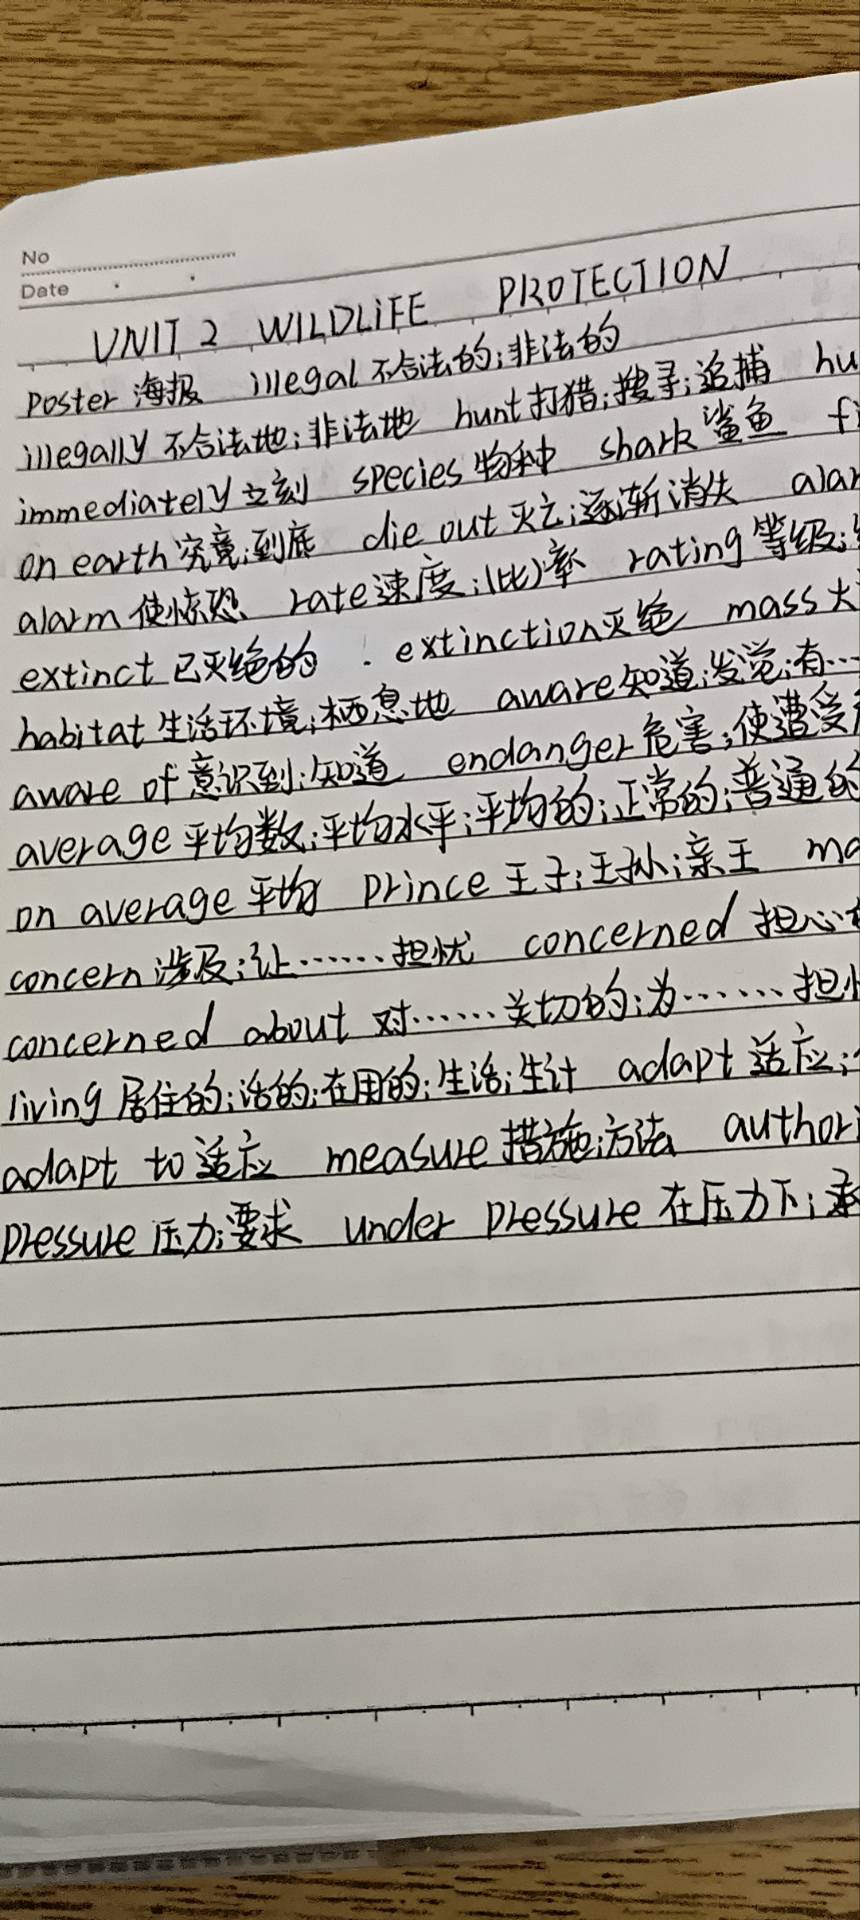 No
Date
UNIT 2 WILDLIFE PROTECTION
poster 海报 illegal 不合法的;非法的
illegally 不合法地;非法地 hunt 打猎;搜寻;追捕 hu
immediately 立刻 species 物种 shark 鲨鱼
on earth 究竟;到底 die out 灭亡;逐渐消失 alar
alarm 使惊恐 rate 速度;(比)率 rating 等级;
extinct 已灭绝的 . extinction 灭绝 mass 大
habitat 生活环境;栖息地 aware 知道;发觉;有…
aware of 意识到;知道 endanger 危害;使遭受
average 平均数;平均水平;平均的;正常的;普通的
on average 平均 prince 王子;王孙;亲王 ma
concern 涉及;让……担忧 concerned 担心
concerned about 对……关切的;为……担
living 居住的;活的;在用的;生活;生计 adapt 适应;
adapt to 适应 measure 措施;方法 authori
pressure 压力;要求 under pressure 在压力下;承